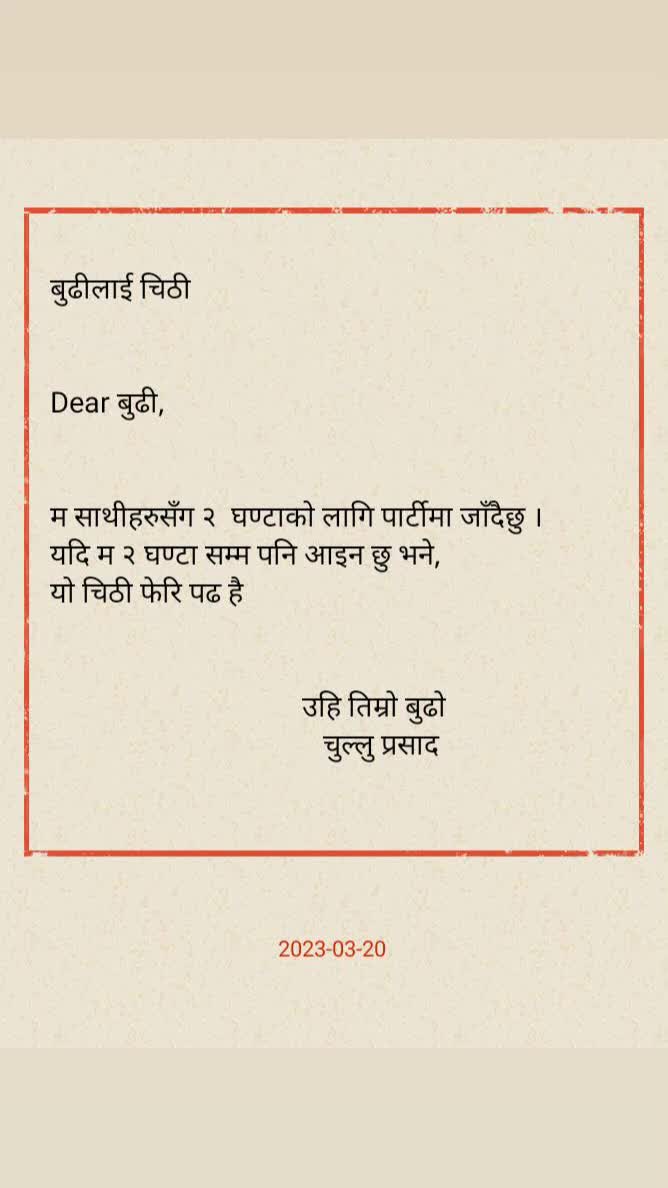 बुढीलाई चिठी
Dear बुढी,
म साथीहरुसँग २ घण्टाको लागि पार्टीमा जाँदैछु ।
यदि म २ घण्टा सम्म पनि आइन छु भने,
यो चिठी फेरि पढ है
उहि तिम्रो बुढो
चुल्लु प्रसाद
2023-03-20